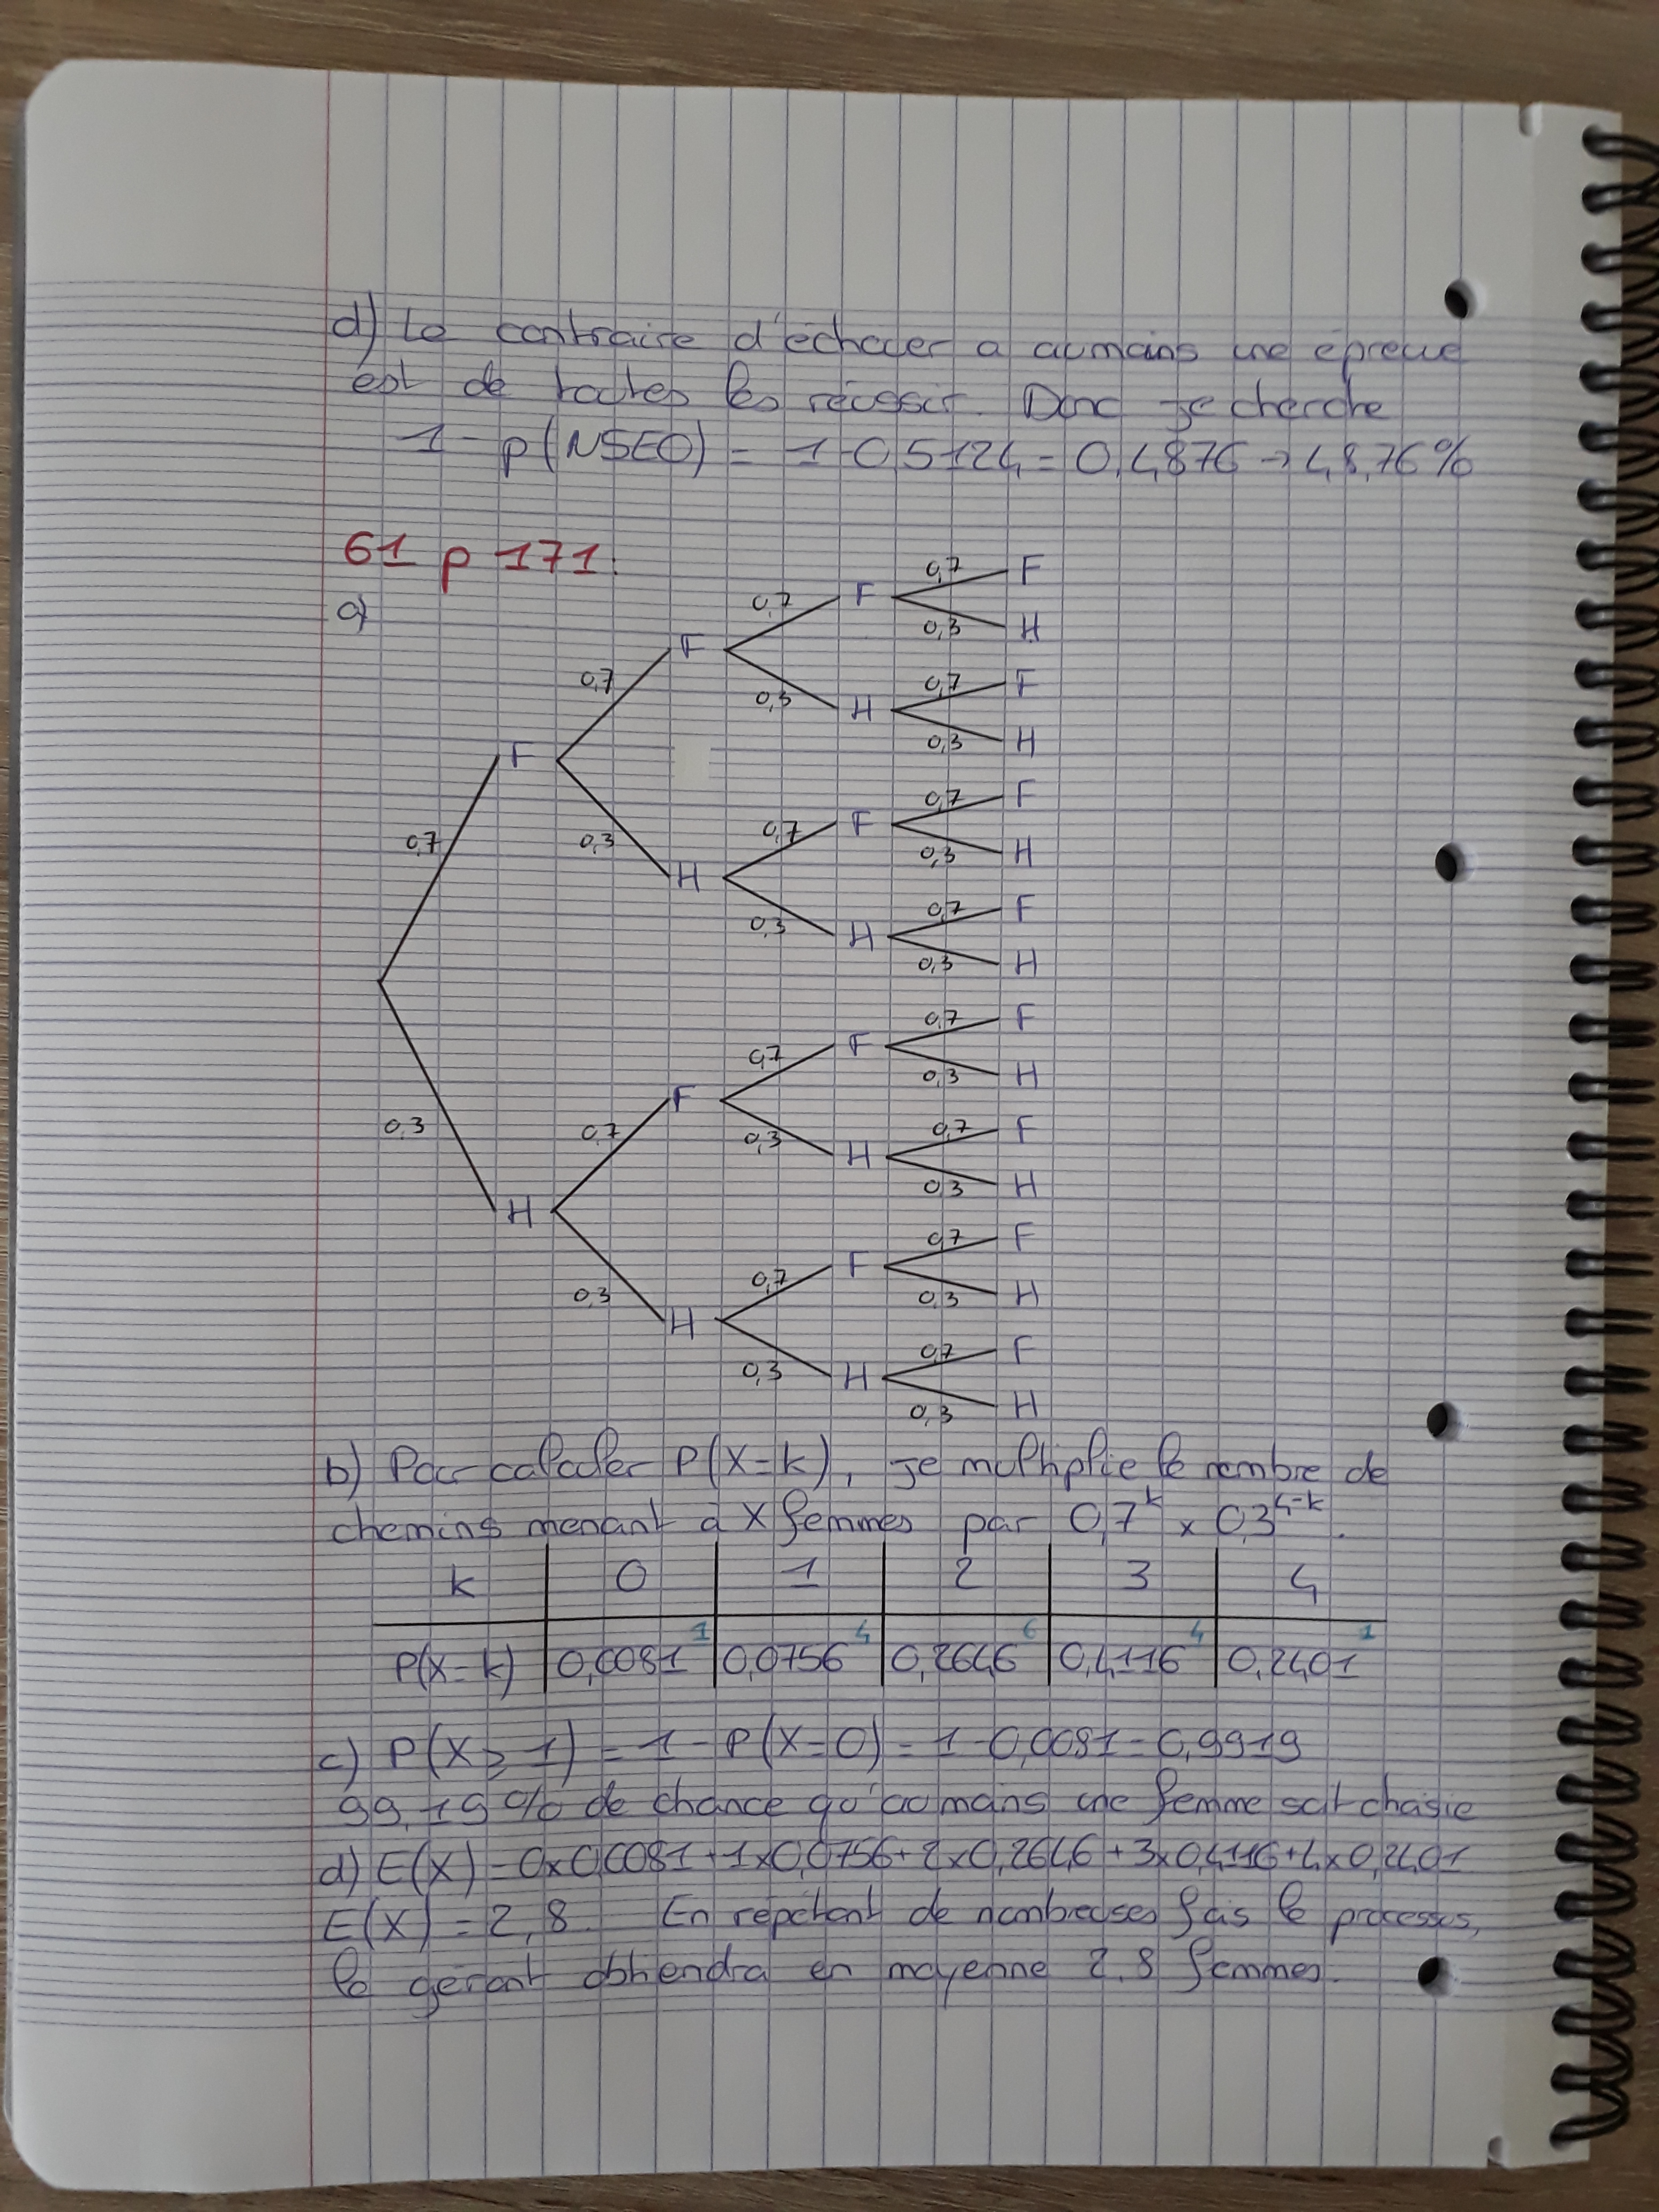 d) Le contraire d'échouer a aumoins une épreuve
est de toutes les réussir. Donc je cherche
1 - p(NSEO) = 1-0,5124 = 0,4876 → 48,76%
61 p 171:
a)
0,7 F
0,7 F 0,3 H
0,7 F 0,3 H 0,7 F
0,3 H
0,7 F 0,3 H 0,7 F 0,7 F
0,3 H
0,3 H 0,7 F
0,3 H
0,3 H 0,7 F 0,7 F 0,7 F
0,3 H
0,3 H 0,7 F
0,3 H
0,3 H 0,7 F 0,7 F
0,3 H
0,3 H 0,7 F
0,3 H
b) Pour calculer P(X=k), je multiplie le nombre de
chemins menant à X femmes par 0,7^k × 0,3^4-k.
k 0 1 2 3 4
P(X=k) 0,0081 1 0,0756 4 0,2646 6 0,4116 4 0,2401 1
c) P(X ≥ 1) = 1 - P(X=0) = 1-0,0081 = 0,9919
99,19 % de chance qu'aumoins une femme soit choisie
d) E(X) = 0×0,0081+1×0,0756+2×0,2646+3×0,4116+4×0,2401
E(X) = 2,8. En répétant de nombreuses fois le processus,
le gérant obtiendra en moyenne 2,8 femmes.